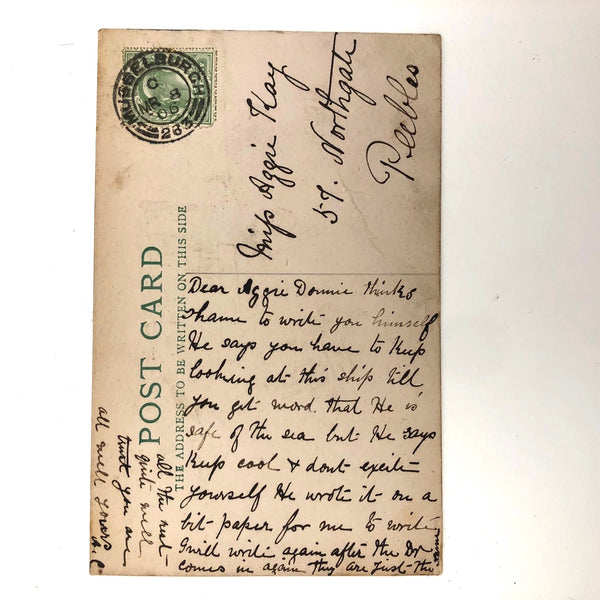 MUSSELBURGH
C
MR 8
06
233
Miss Aggie Kay
57. Northgate
Peebles
POST CARD
THE ADDRESS TO BE WRITTEN ON THIS SIDE
Dear Aggie Donnie thinks
shame to write you himself
He says you have to keep
looking at this ship till
you get word that He is
safe of the sea but He says
Keep cool & dont excite
yourself He wrote it on a
bit paper for me to write
I will write again after the Dr
comes in again they are just the
same
all the rest
quite well
trust you are
all well yours